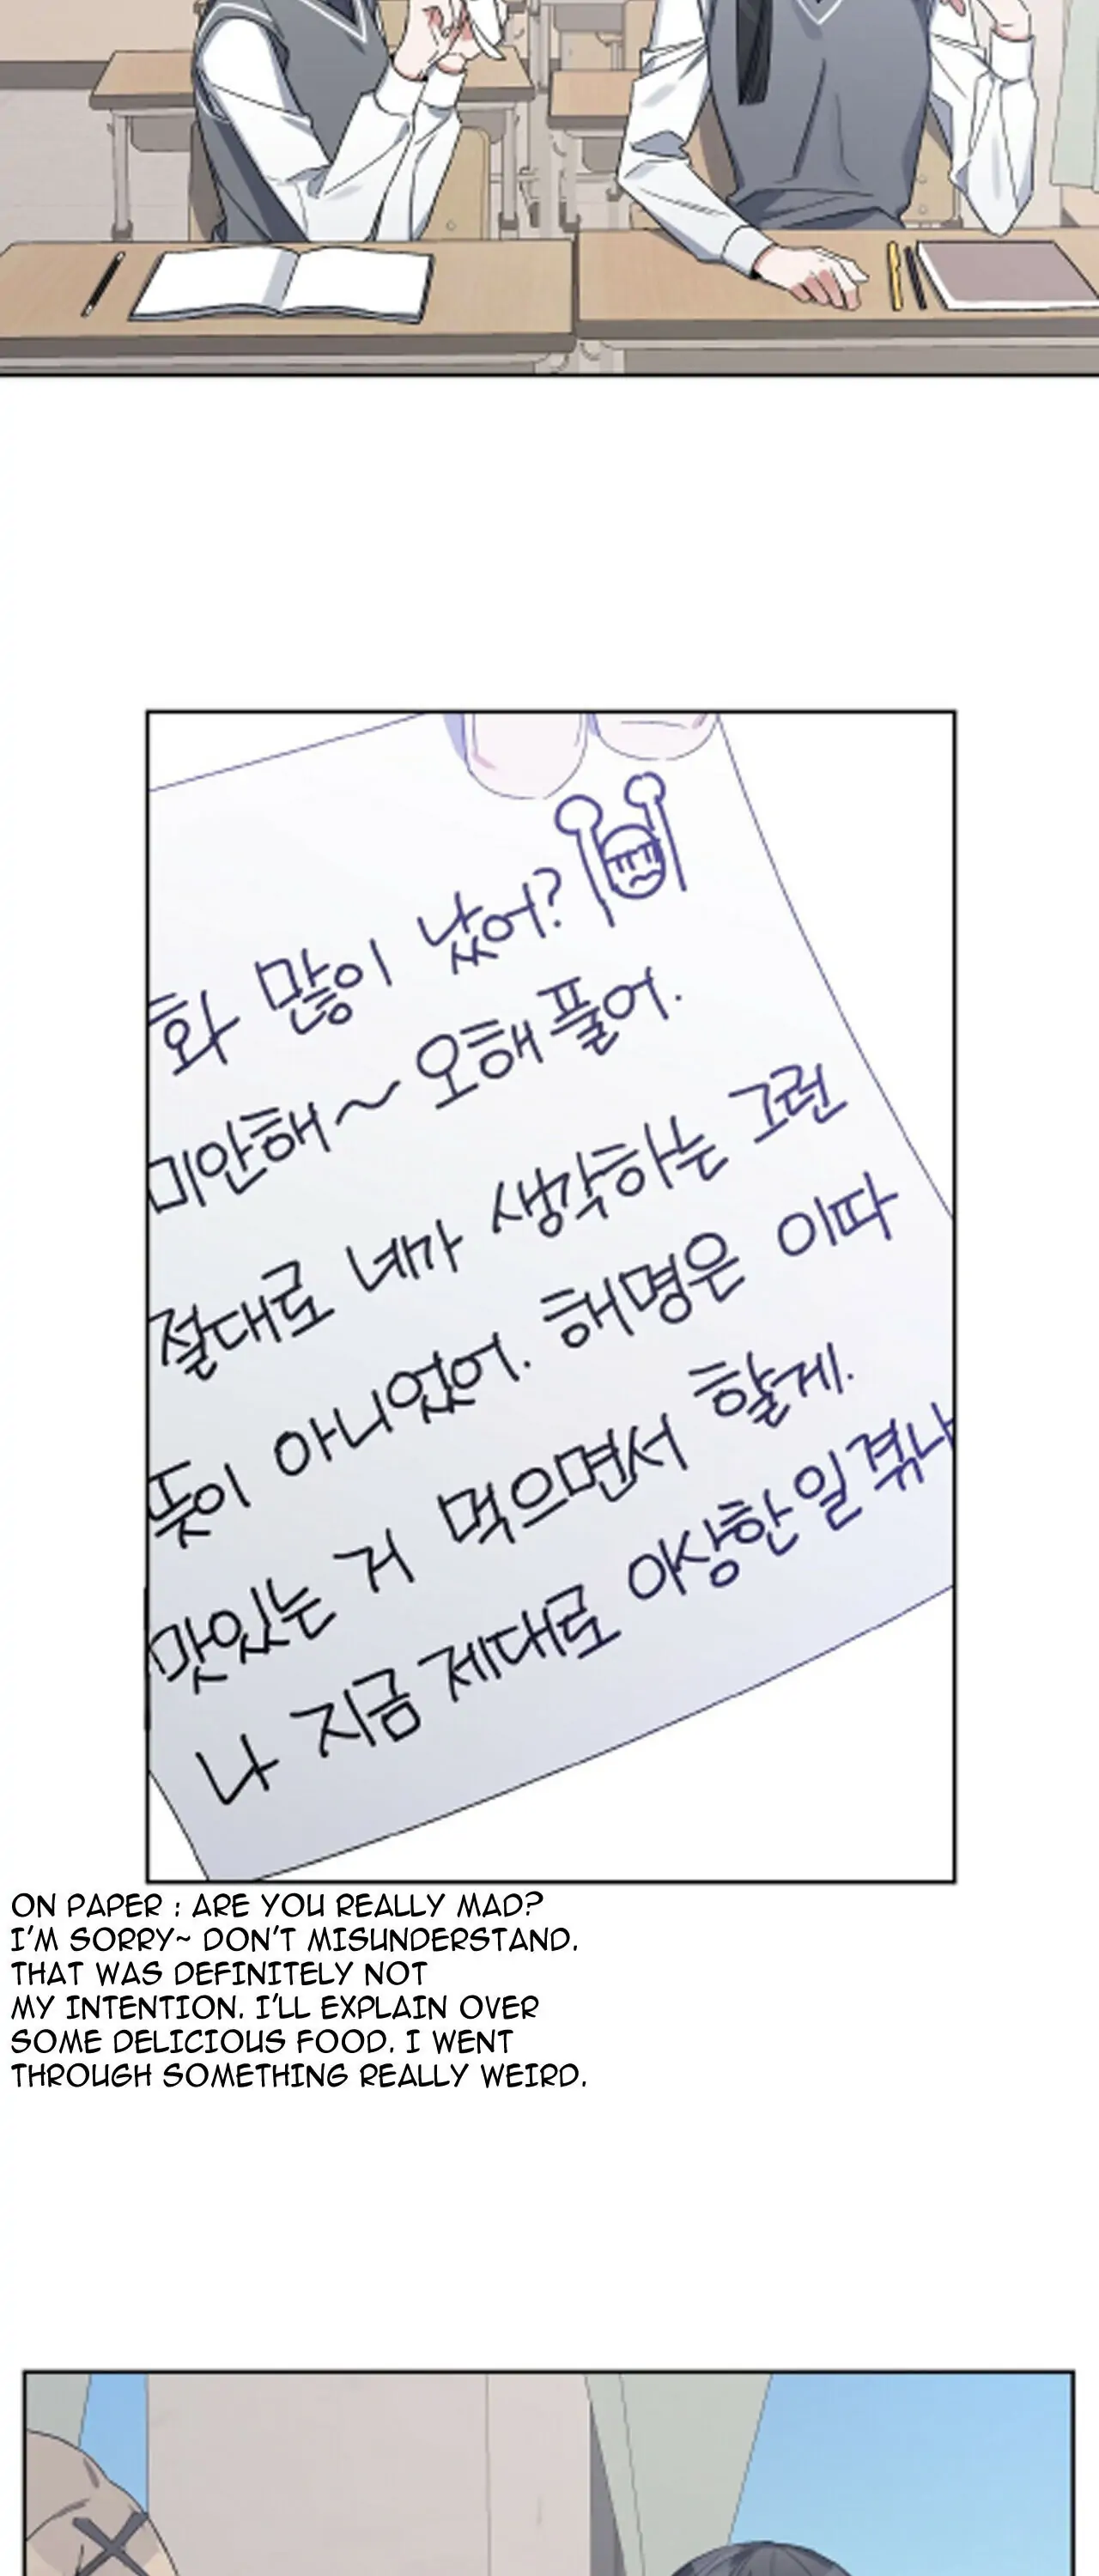 화 많이 났어?
미안해~ 오해 풀어.
절대로 네가 생각하는 그런
뜻이 아니었어. 해명은 이따
맛있는 거 먹으면서 할게.
나 지금 제대로 이상한 일 겪나
ON PAPER : ARE YOU REALLY MAD?
I'M SORRY~ DON'T MISUNDERSTAND.
THAT WAS DEFINITELY NOT
MY INTENTION. I'LL EXPLAIN OVER
SOME DELICIOUS FOOD. I WENT
THROUGH SOMETHING REALLY WEIRD.